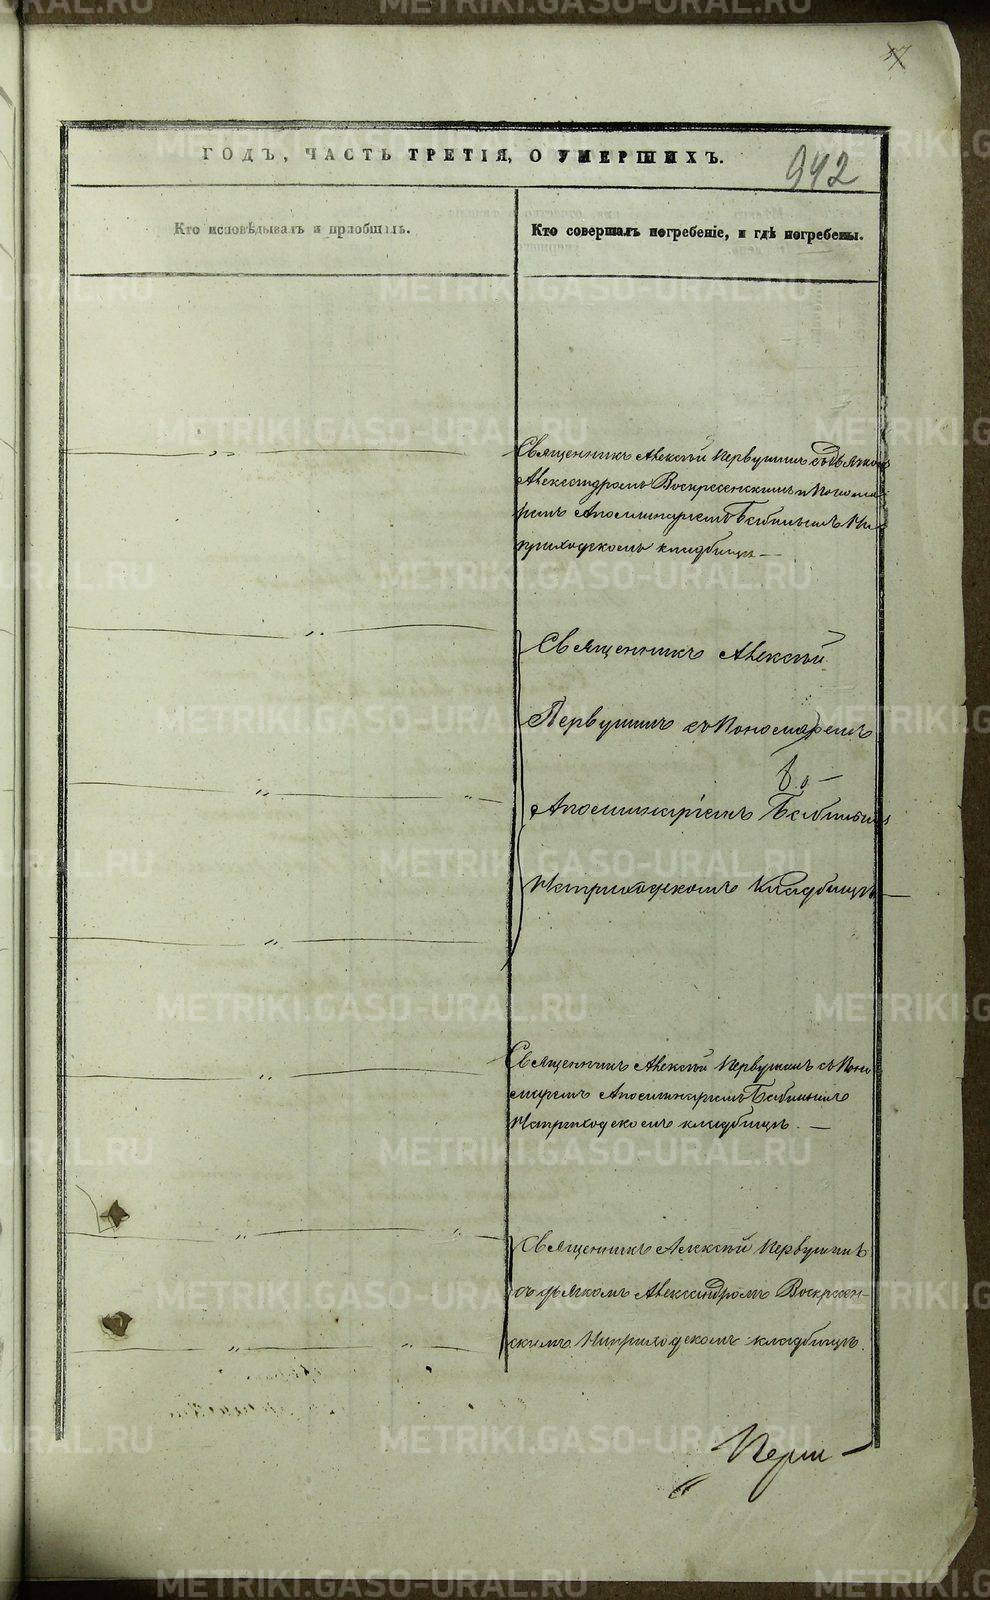 942
ГОДЪ, ЧАСТЬ ТРЕТІЯ, О УМЕРШИХЪ.
Кто исповѣдывалъ и пріобщалъ.
Кто совершалъ погребеніе, и гдѣ погребены.
Священникъ Алексѣй Первушинъ съ дьячком
Александромъ Воскресенскимъ и Понома-
ремъ Аполлинаріемъ Бабинымъ На
приходскомъ кладбищѣ
Священникъ Алексѣй
Первушинъ съ Пономаремъ
Аполлинаріемъ Бабинымъ
На приходскомъ Кладбищѣ
Священникъ Алексѣй Первушинъ съ Поно
маремъ Аполлинаріемъ Бабинымъ
На приходскомъ кладбищѣ.
Священникъ Алексѣй Первушинъ
съ дьячкомъ Александромъ Воскресен-
скимъ На приходскомъ кладбищѣ.
METRIKI.GASO-URAL.RU